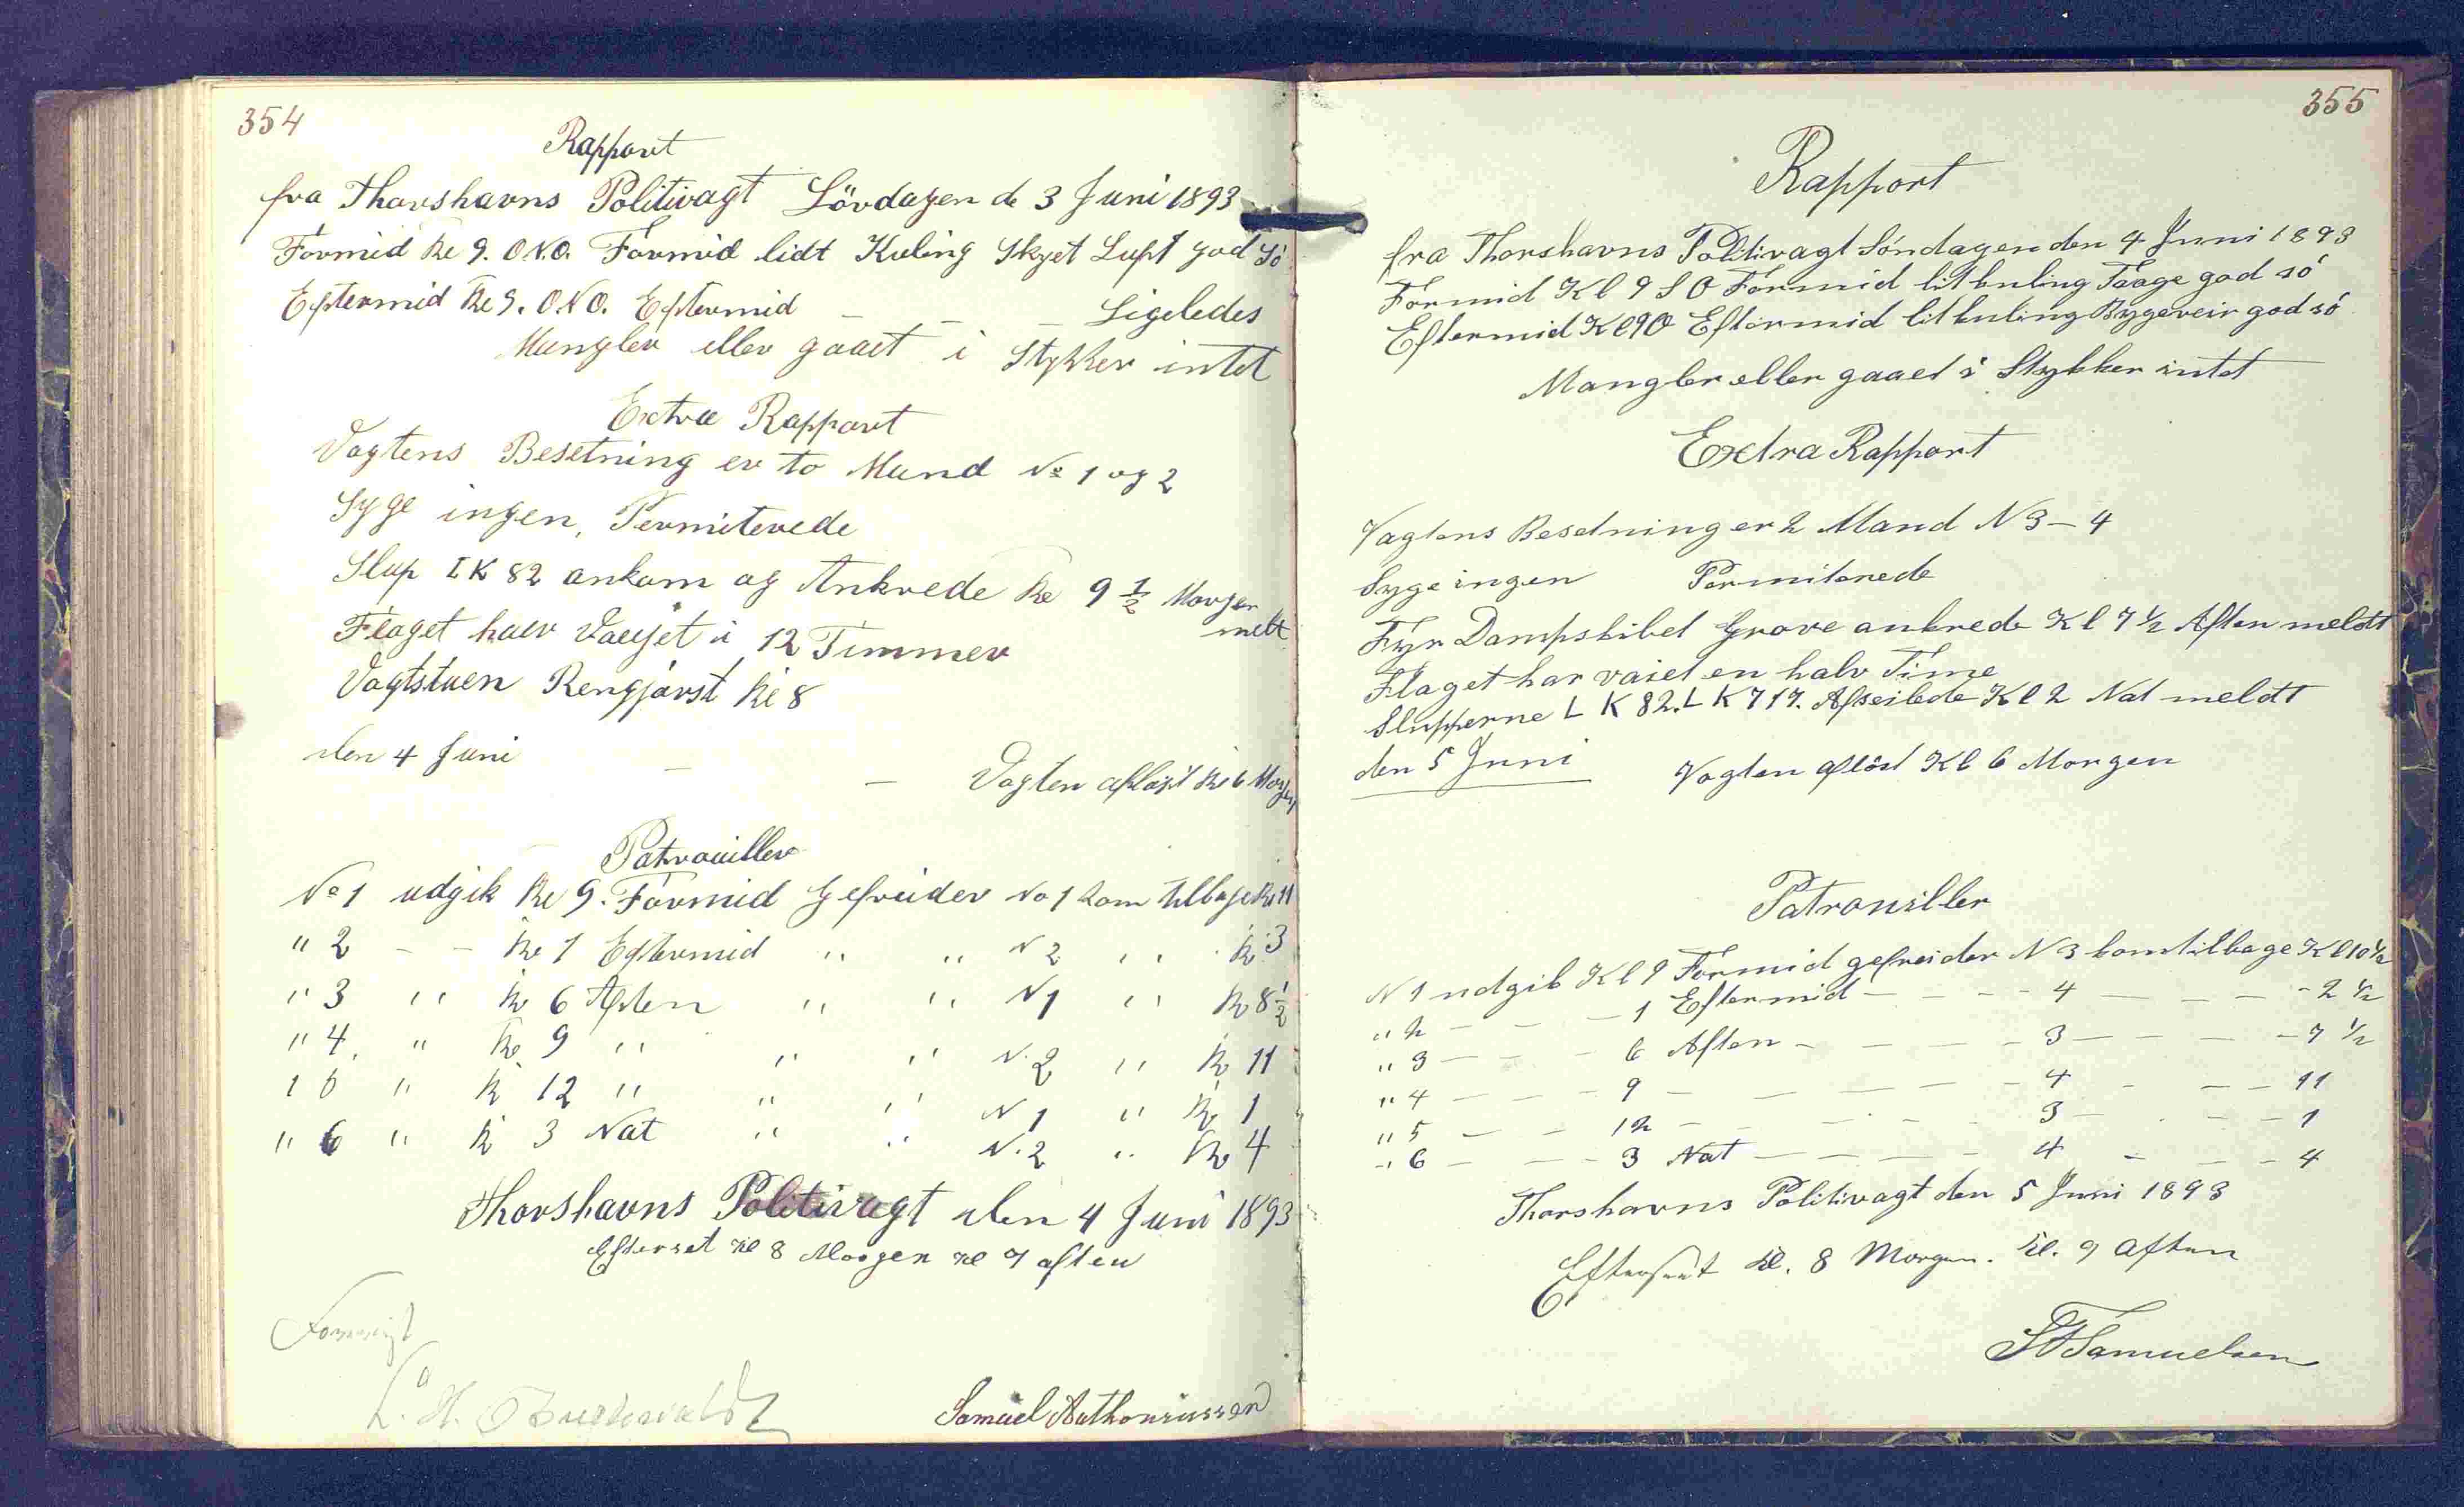 354
Rapport
fra Thorshavns Politivagt Lövdagen d 3 Juni 1893
Formid Kl 9. O.N.O. Formid lidt Kuling Skyet Luft god Sö
Eftermid Kl 9. O.N.O. Eftermid — — — Ligeledes
Mangler eller gaaet i Stykker intet
Extra Rapport
Vagtens Besetning er to Mand No 1 og 2
Syge ingen, Permiterede
Slup LK 82 ankom og Ankrede Kl 9 1/2 Morgen
melt
Flaget haver Vaeyet i 12 Timmer
Vagtstuen Rengjörst Kl 8
den 4 Juni — — Vagten aflöst Kl 6 Morgen
Patrouiller
No 1 udgik Kl 9. Formid Gefreider No 1 kom tilbage Kl 11
" 2 — — Kl 1 Eftermid " " N 2 " " Kl 3
" 3 " Kl 6 Aften " " N 1 " Kl 8 1/2
" 4. " Kl 9 " " " N. 2 " Kl 11
" 5 " Kl 12 " " " N 1 " Kl 1
" 6 " Kl 3 Nat " " N. 2 " Kl 4
Thorshavns Politivagt den 4 Juni 1893
Efterset Kl 8 Morgen Kl 9 aften
Samuel Anthoniussen
355
Rapport
fra Thorshavns Politivagt Söndagen den 4 Juni 1893
Formid Kl 9 S O Formid lit kuling Taage god sö
Eftermid Kl 9 O Eftermid lit kuling Bygeveir god sö
Mangler eller gaaet i Stykker intet
Extra Rapport
Vagtens Besetning er 2 Mand N 3 – 4
Syge ingen Permiterede
Fyr Dampskibet Grove ankrede Kl 7 1/2 Aften meldt
Flaget har vaiet en halv Time
Slupperne L K 82. L K 717. Afseilede Kl 2 Nat meldt
den 5 Juni Vagten aflöst Kl 6 Morgen
Patrouiller
N 1 udgik Kl 9 Formid gefreider N 3 kom tilbage Kl 10 1/2
" 2 — — — 1 Eftermid — — — 4 — — — 2 1/2
" 3 — — — 6 Aften — — — 3 — — — 7 1/2
" 4 — — — 9 — — — — 4 — — — 11
" 5 — — 12 — — — — 3 — — — 1
" 6 — — — 3 Nat — — — 4 — — — 4
Thorshavns Politivagt den 5 Juni 1893
Efterseet Kl. 8 Morgen. Kl. 9 Aften
Samuelsen